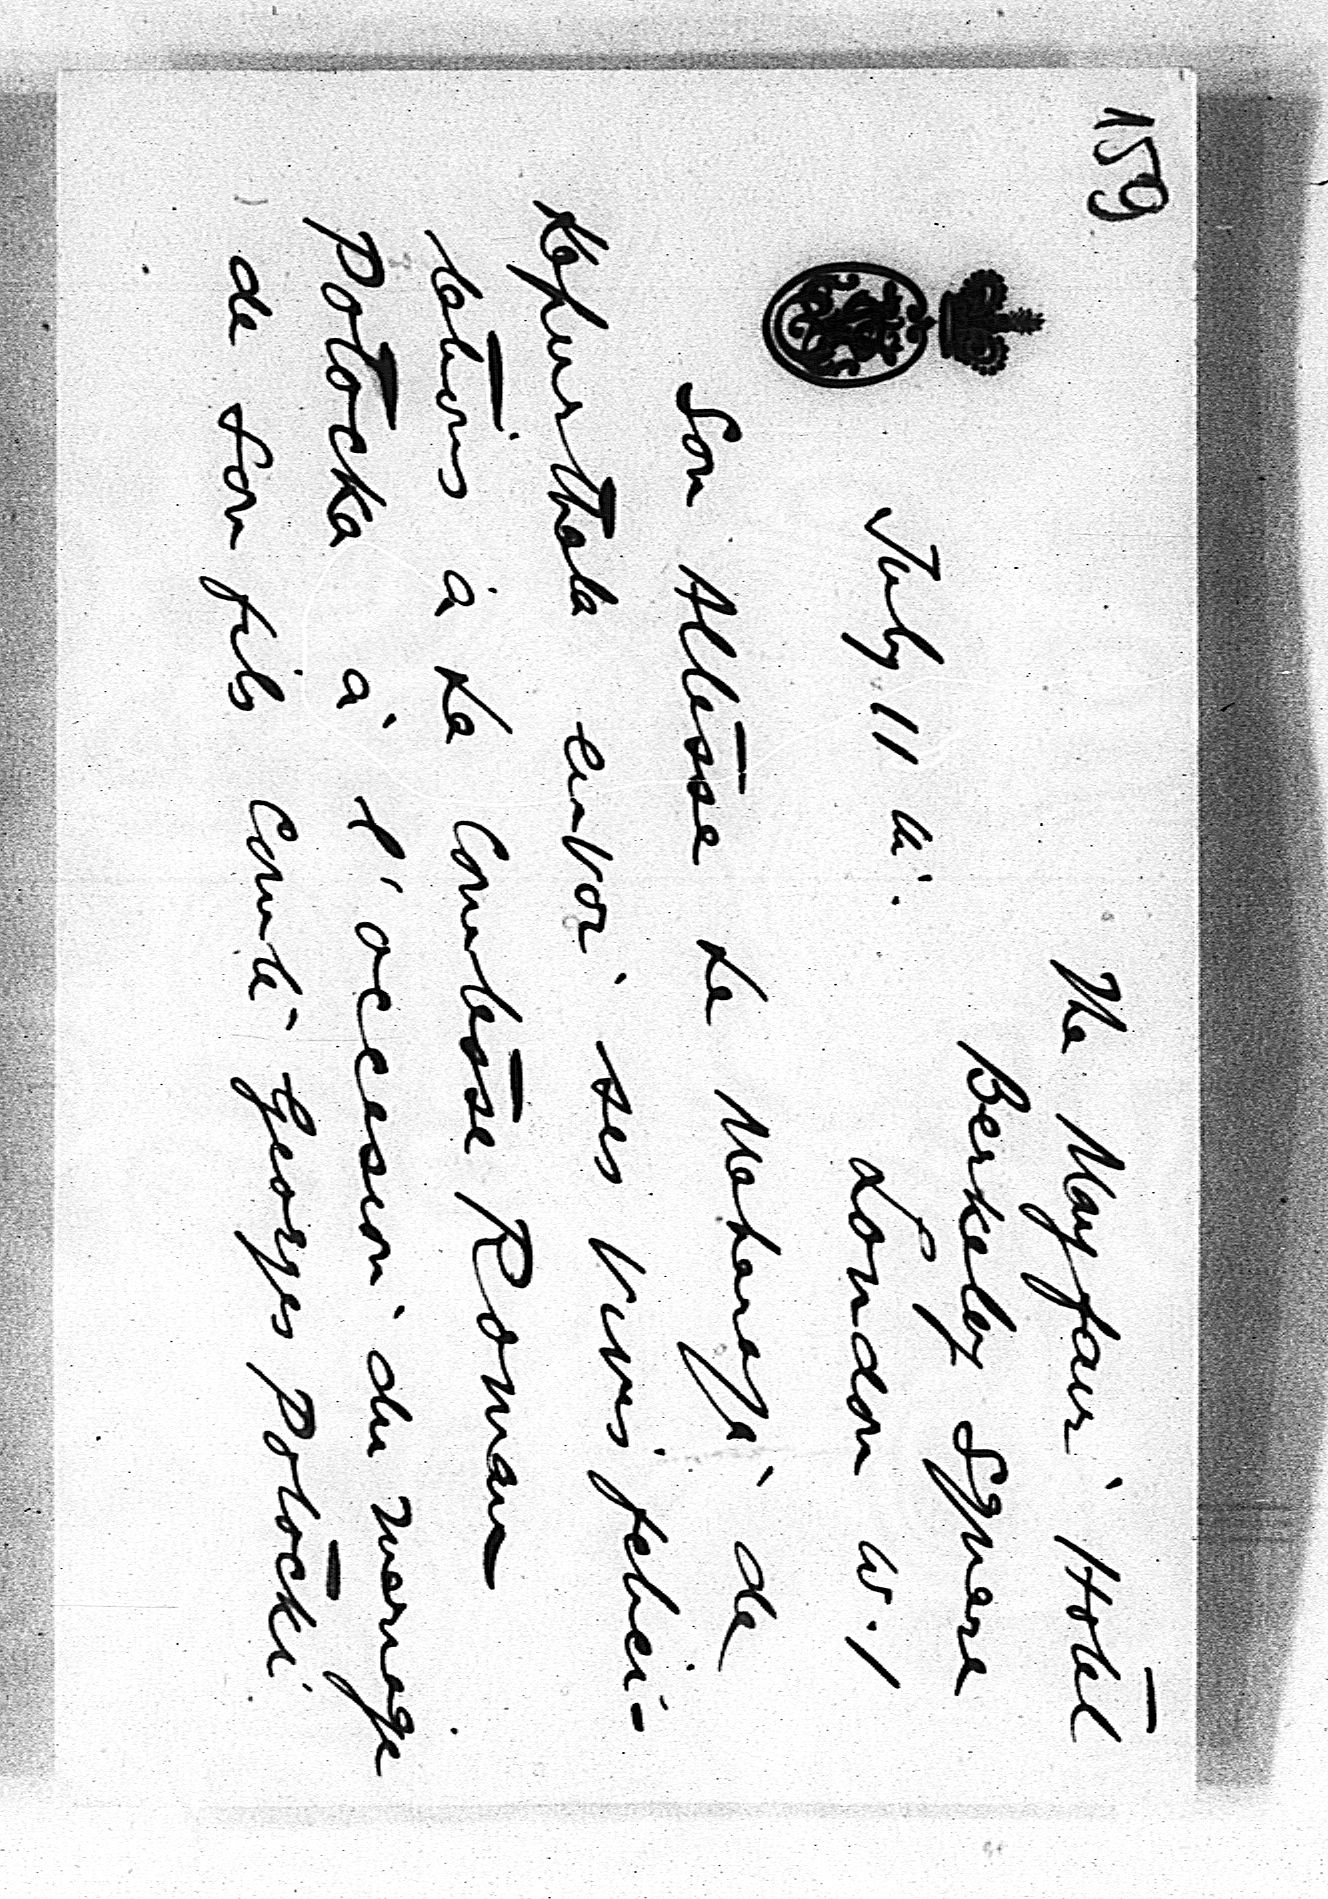 159
The Mayfair Hotel
Berkeley Square
London W.1
July 11th.
Son Altesse Le Maharaja de
Kapurthala envoi ses vives félici-
tations à La Comtesse Roman
Potocka à l'occasion du mariage
de son fils Comte Georges Potocki